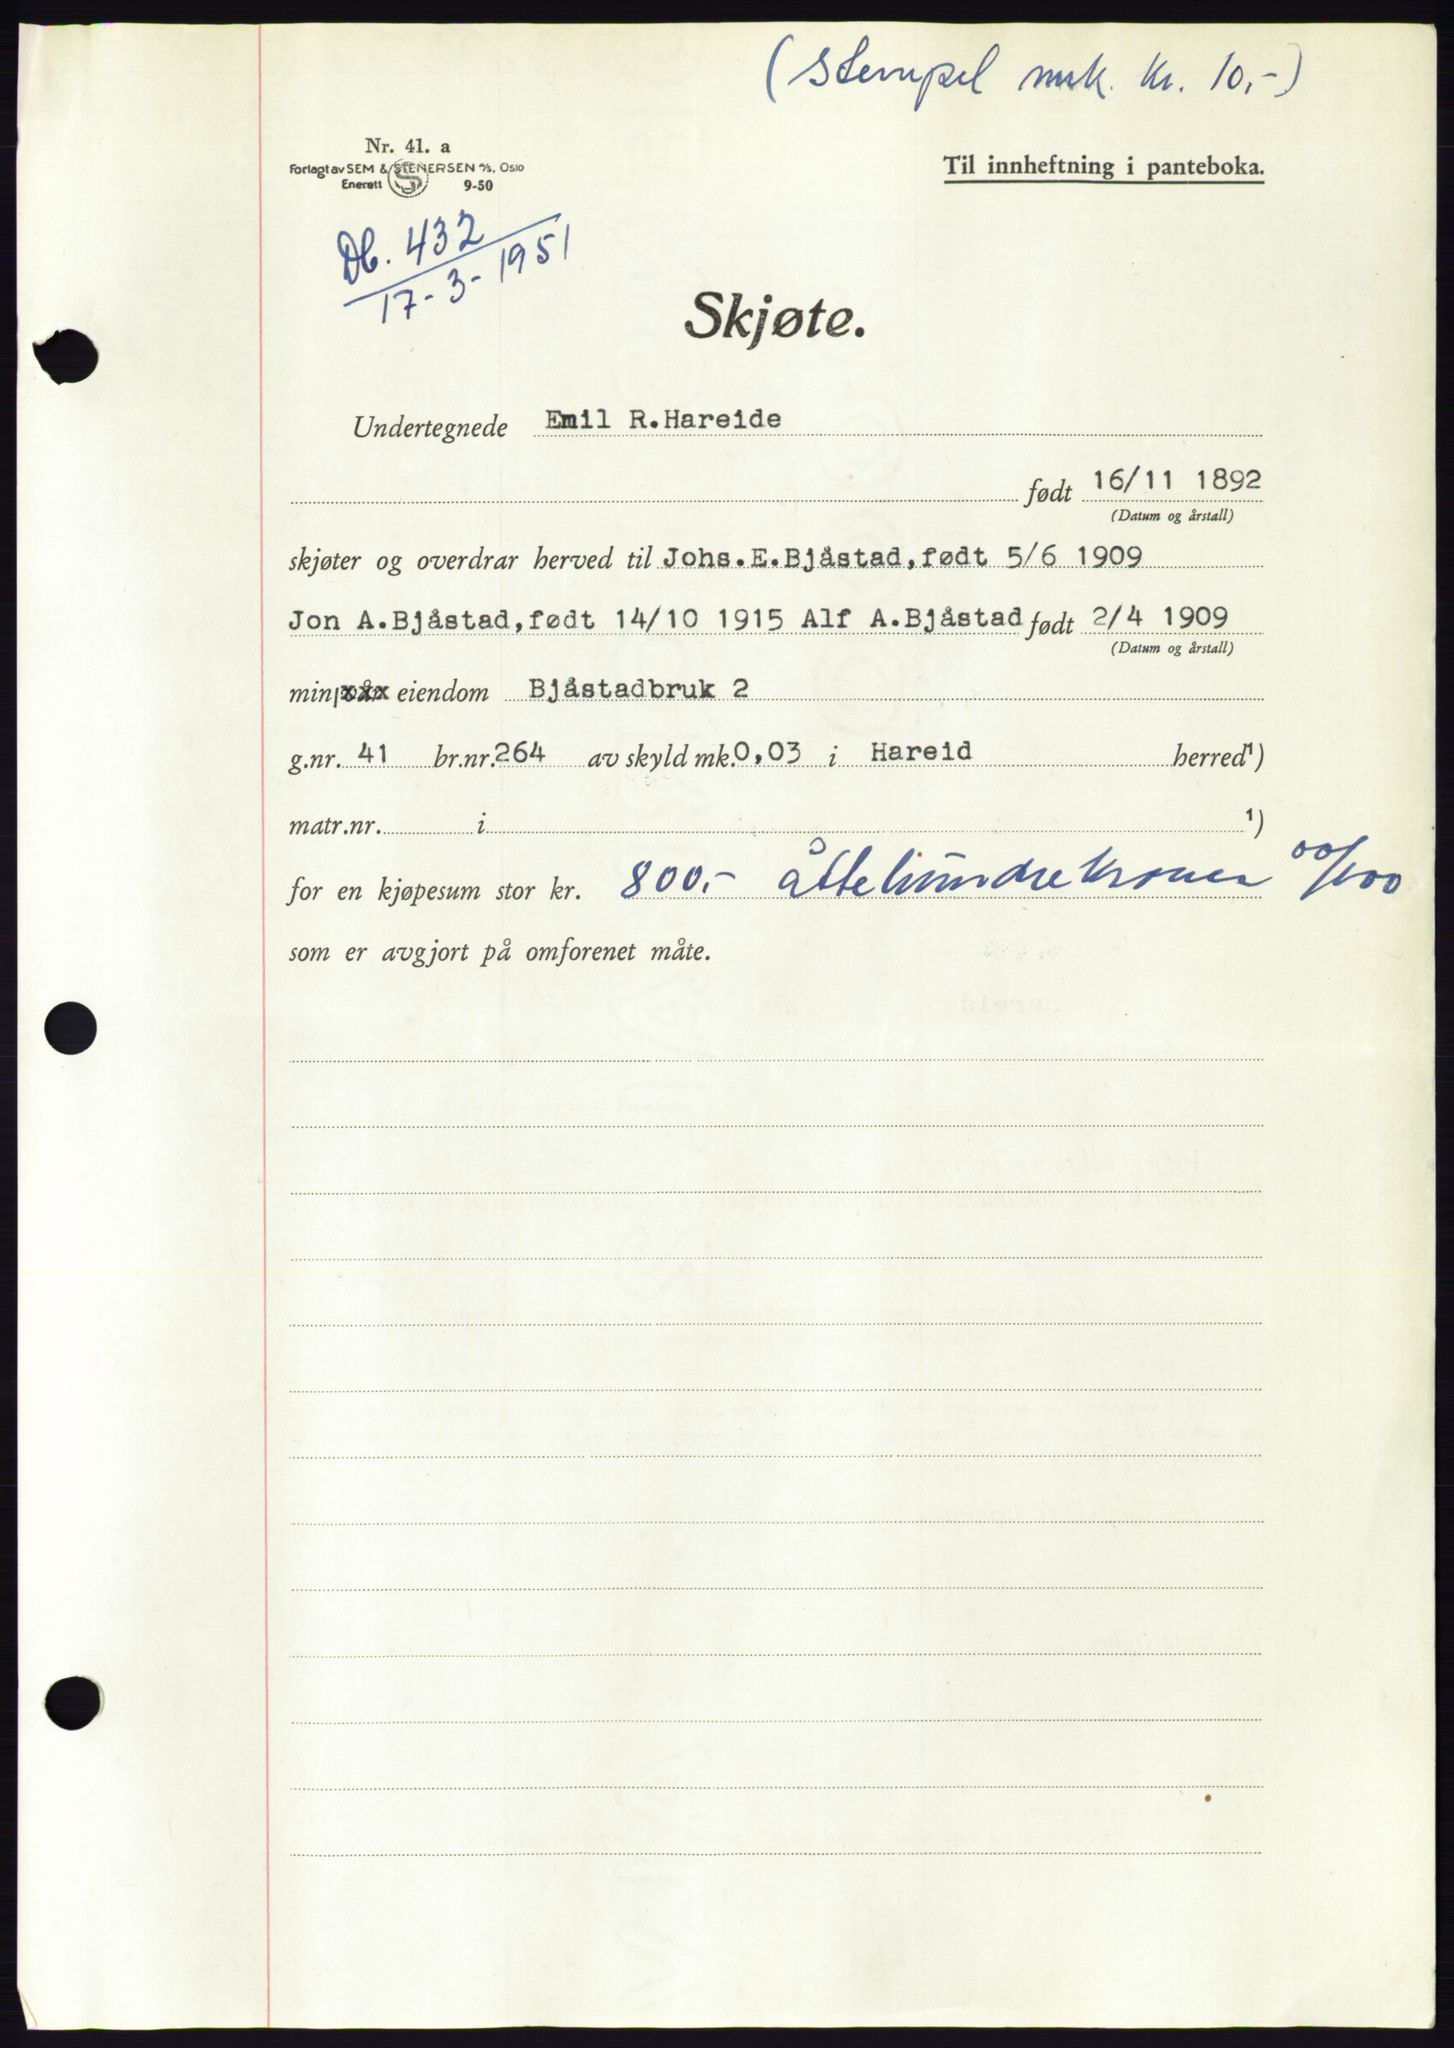 (Stempel mrk. kr. 10,-)
Nr. 41. a
Forlagt av SEM & STENERSEN A/S, Oslo
Enerett 9-50
Til innheftning i panteboka.
Db. 432
17-3-1951
Skjøte.
Undertegnede Emil R.Hareide
født 16/11 1892
(Datum og årstall)
skjøter og overdrar herved til Johs.E.Bjåstad,født 5/6 1909
Jon A.Bjåstad,født 14/10 1915 Alf A.Bjåstad født 2/4 1909
(Datum og årstall)
min/xxx eiendom Bjåstadbruk 2
g.nr. 41 br.nr. 264 av skyld mk. 0,03 i Hareid herred¹)
matr.nr. i ¹)
for en kjøpesum stor kr. 800.- åttehundrekroner 00/100
som er avgjort på omforenet måte.